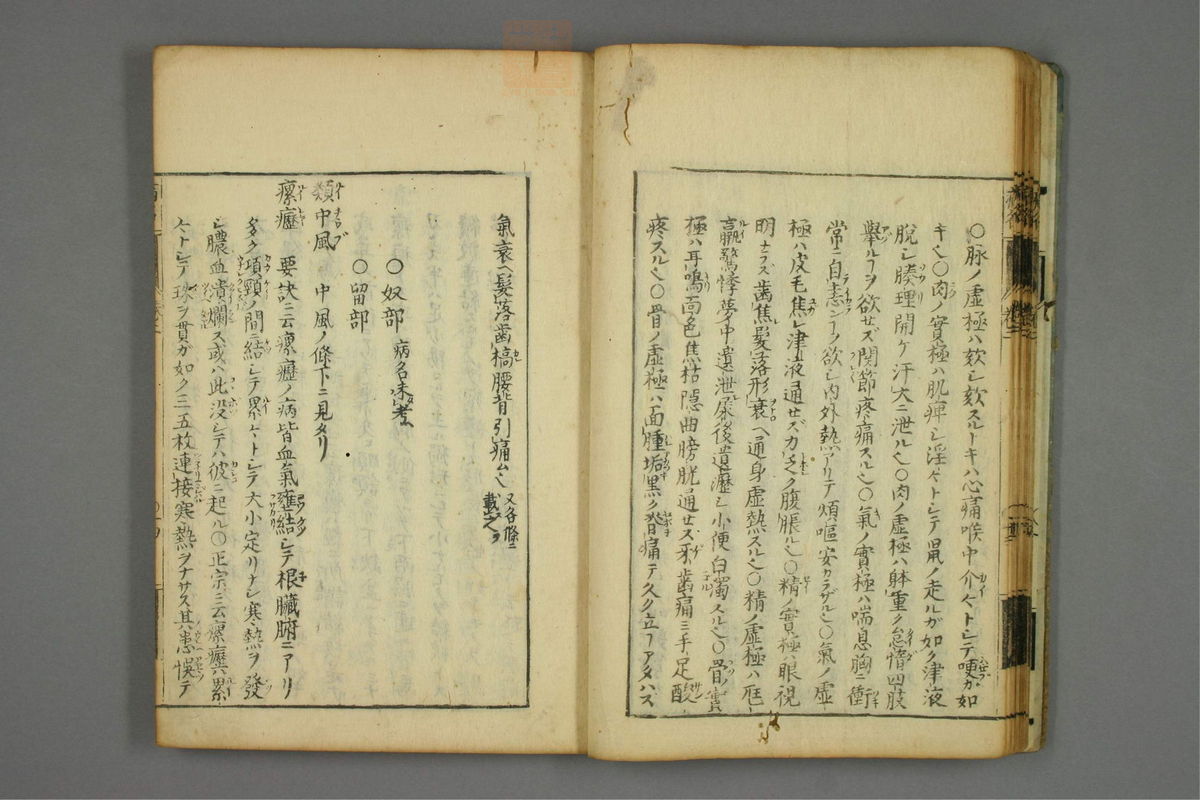 〇脉ノ虚極ハ欬シ欬スルトキハ心痛喉中介々トシテ哽ガ如
キ也〇肉ノ實極ハ肌痺シ淫々トシテ鼠ノ走ルガ如ク津液
脱シ腠理開ケ汗大ニ泄ル也〇肉ノ虚極ハ躰重ク怠惰四肢
擧ルヿヲ欲セズ関節疼痛スル也〇氣ノ實極ハ喘息胸ニ衝
常ニ自恚シヿヲ欲シ内外熱アリテ煩嘔安カラザル也〇氣ノ虚
極ハ皮毛焦レ津液通セズ力乏ク腹脹ル也〇精ノ實極ハ眼視
明ナラズ歯焦髪落形衰ヘ通身虚熱スル也〇精ノ虚極ハ尩
羸驚悸夢中遺泄尿後遺瀝シ小便白濁スル也〇骨ノ實
極ハ耳鳴面色焦枯隠曲膀胱通セズ牙歯痛ミ手足酸
疼スル也〇骨ノ虚極ハ面腫垢黒ク脊痛テ久ク立ヿアタハズ
氣衰ヘ髪落歯槁腰背引痛ム也 又各條ニ載之ヲ
〇奴部 病名未考
〇留部
類中風 中風ノ條下ニ見タリ
瘰癧 要訣ニ云瘰癧ノ病皆血氣壅結シテ根臓腑ニアリ
多ク項頸ノ間ニ結シテ累々トシテ大小定リナシ寒熱ヲ發
シ膿血潰爛ス或ハ此没シテハ彼ニ起ル〇正宗ニ云瘰癧ハ累
々トシテ珠ヲ貫ガ如ク三五枚連接寒熱ヲナサス其患悞テ